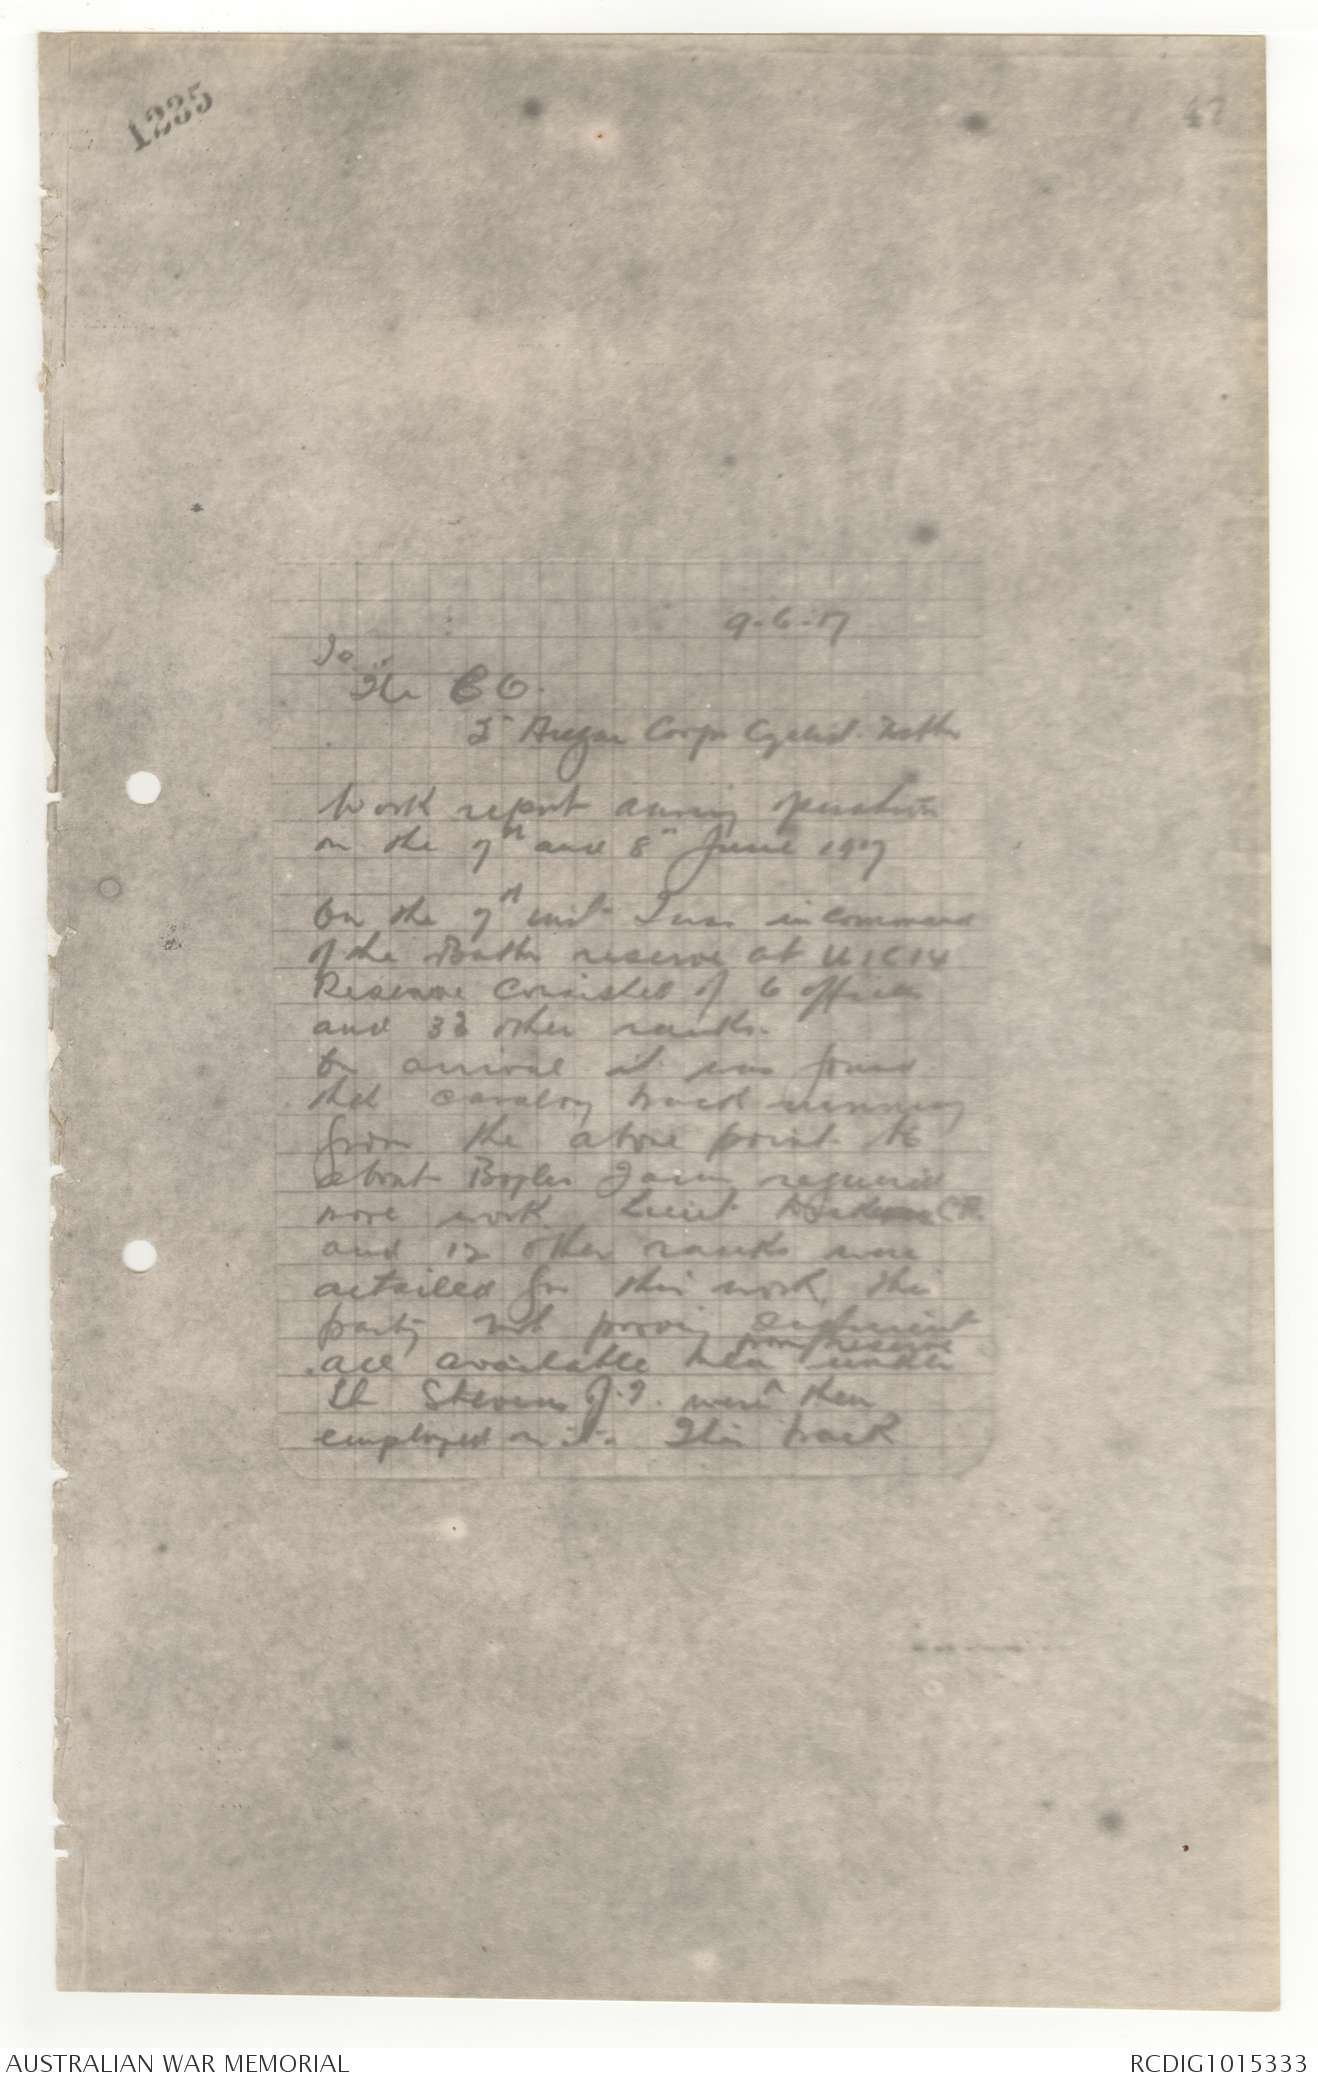 1235
47
9-6-17
To
The C O.
Anzac Corps Cyclist Battn
Work report during operations
on the 7th and 8th June 1917
On the 7th inst I was in command
of the Battn reserve at U1C14
Reserve consisted of 6 officers
and 33 other ranks.
On arrival it was found
that cavalry track running
from the above point to
about Farm required
more work. Lieut
and 12 other ranks were
detailed for this work, this
party not proving sufficient
from reserve
all available men under
Lt Stevens J.T. were then
employed on it. This track
AUSTRALIAN WAR MEMORIAL
RCDIG1015333